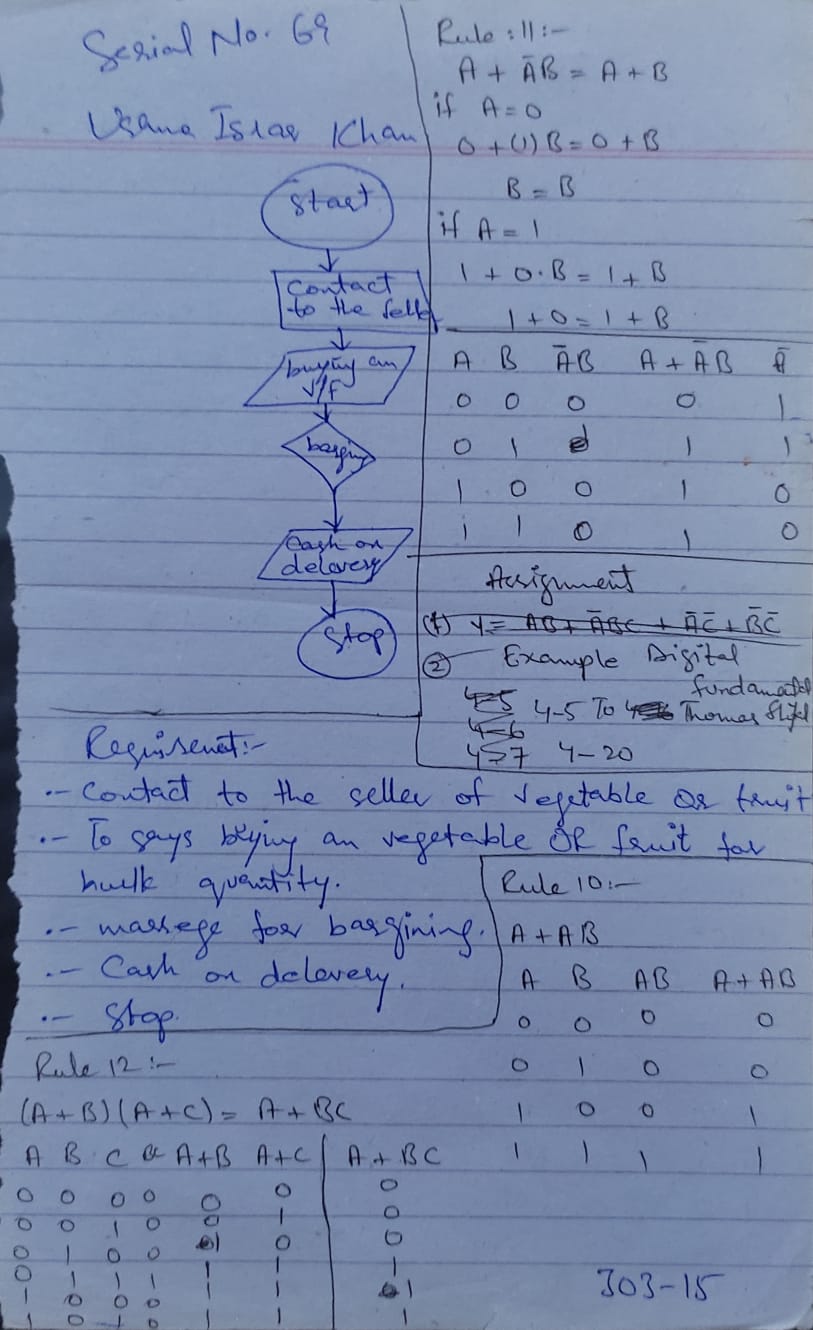 Serial No. 69
Usama Israr Khan
Start
Contact
to the seller
buying an
V/F
bargin
Cash on
delevery
Stop
Rule :11:-
A + ĀB = A + B
if A = 0
0 + (1) B = 0 + B
B = B
if A = 1
1 + 0·B = 1 + B
1 + 0 = 1 + B
A B ĀB A + ĀB Ā
0 0 0 0 1
0 1 1 1
1 0 0 1 0
1 1 0 1 0
Assignment
(1) Y = AB + ĀBC + ĀC̄ + B̄C̄
② Example Digital
fundamental
4-5 4-5 To Thomas
4-6
4-7 4-20
Requirenet:-
.- Contact to the seller of vegetable or fruit
.- To says buying an vegetable OR fruit for
bulk quantity.
.- massege for bargining.
.- Cash on delevery.
.- Stop.
Rule 10:-
A + AB
A B AB A + AB
0 0 0 0
0 1 0 0
1 0 0 1
1 1 1 1
Rule 12:-
(A+B)(A+C) = A + BC
A B C A+B A+C A + BC
0 0 0 0 0 0 0
0 0 1 0 0 1 0
0 1 0 0 1 0 0
0 1 1 1 1 1 1
1 0 0 0 1 1 1
1 0 1 0 1 1 1
303-15